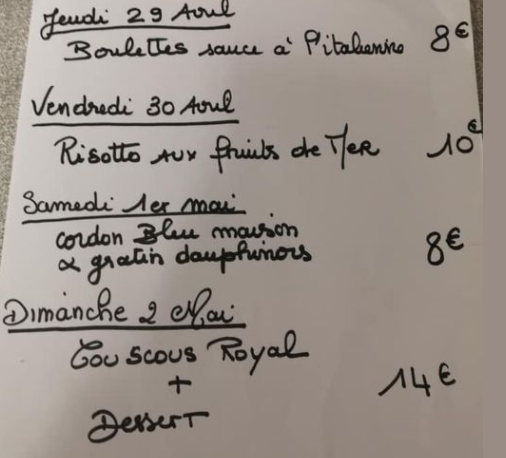 Jeudi 29 Avril
Boulettes sauce à l'italienne 8€
Vendredi 30 Avril
Risotto aux fruits de Mer 10€
Samedi 1er mai
cordon Bleu maison
& gratin dauphinois 8€
Dimanche 2 Mai
Couscous Royal
+ 14€
Dessert